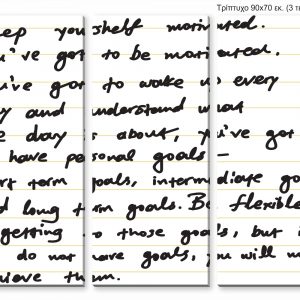 Τρίπτυχο 90x70 εκ. (3 τε
eep yourself motivated.
u've got to be motivated.
u've got to wake up every
y and understand what
e day is about, you've got
have personal goals –
rt term goals, intermediate goals
d long term goals. Be flexible
getting to those goals, but i
do not have goals, you will no
hieve them.